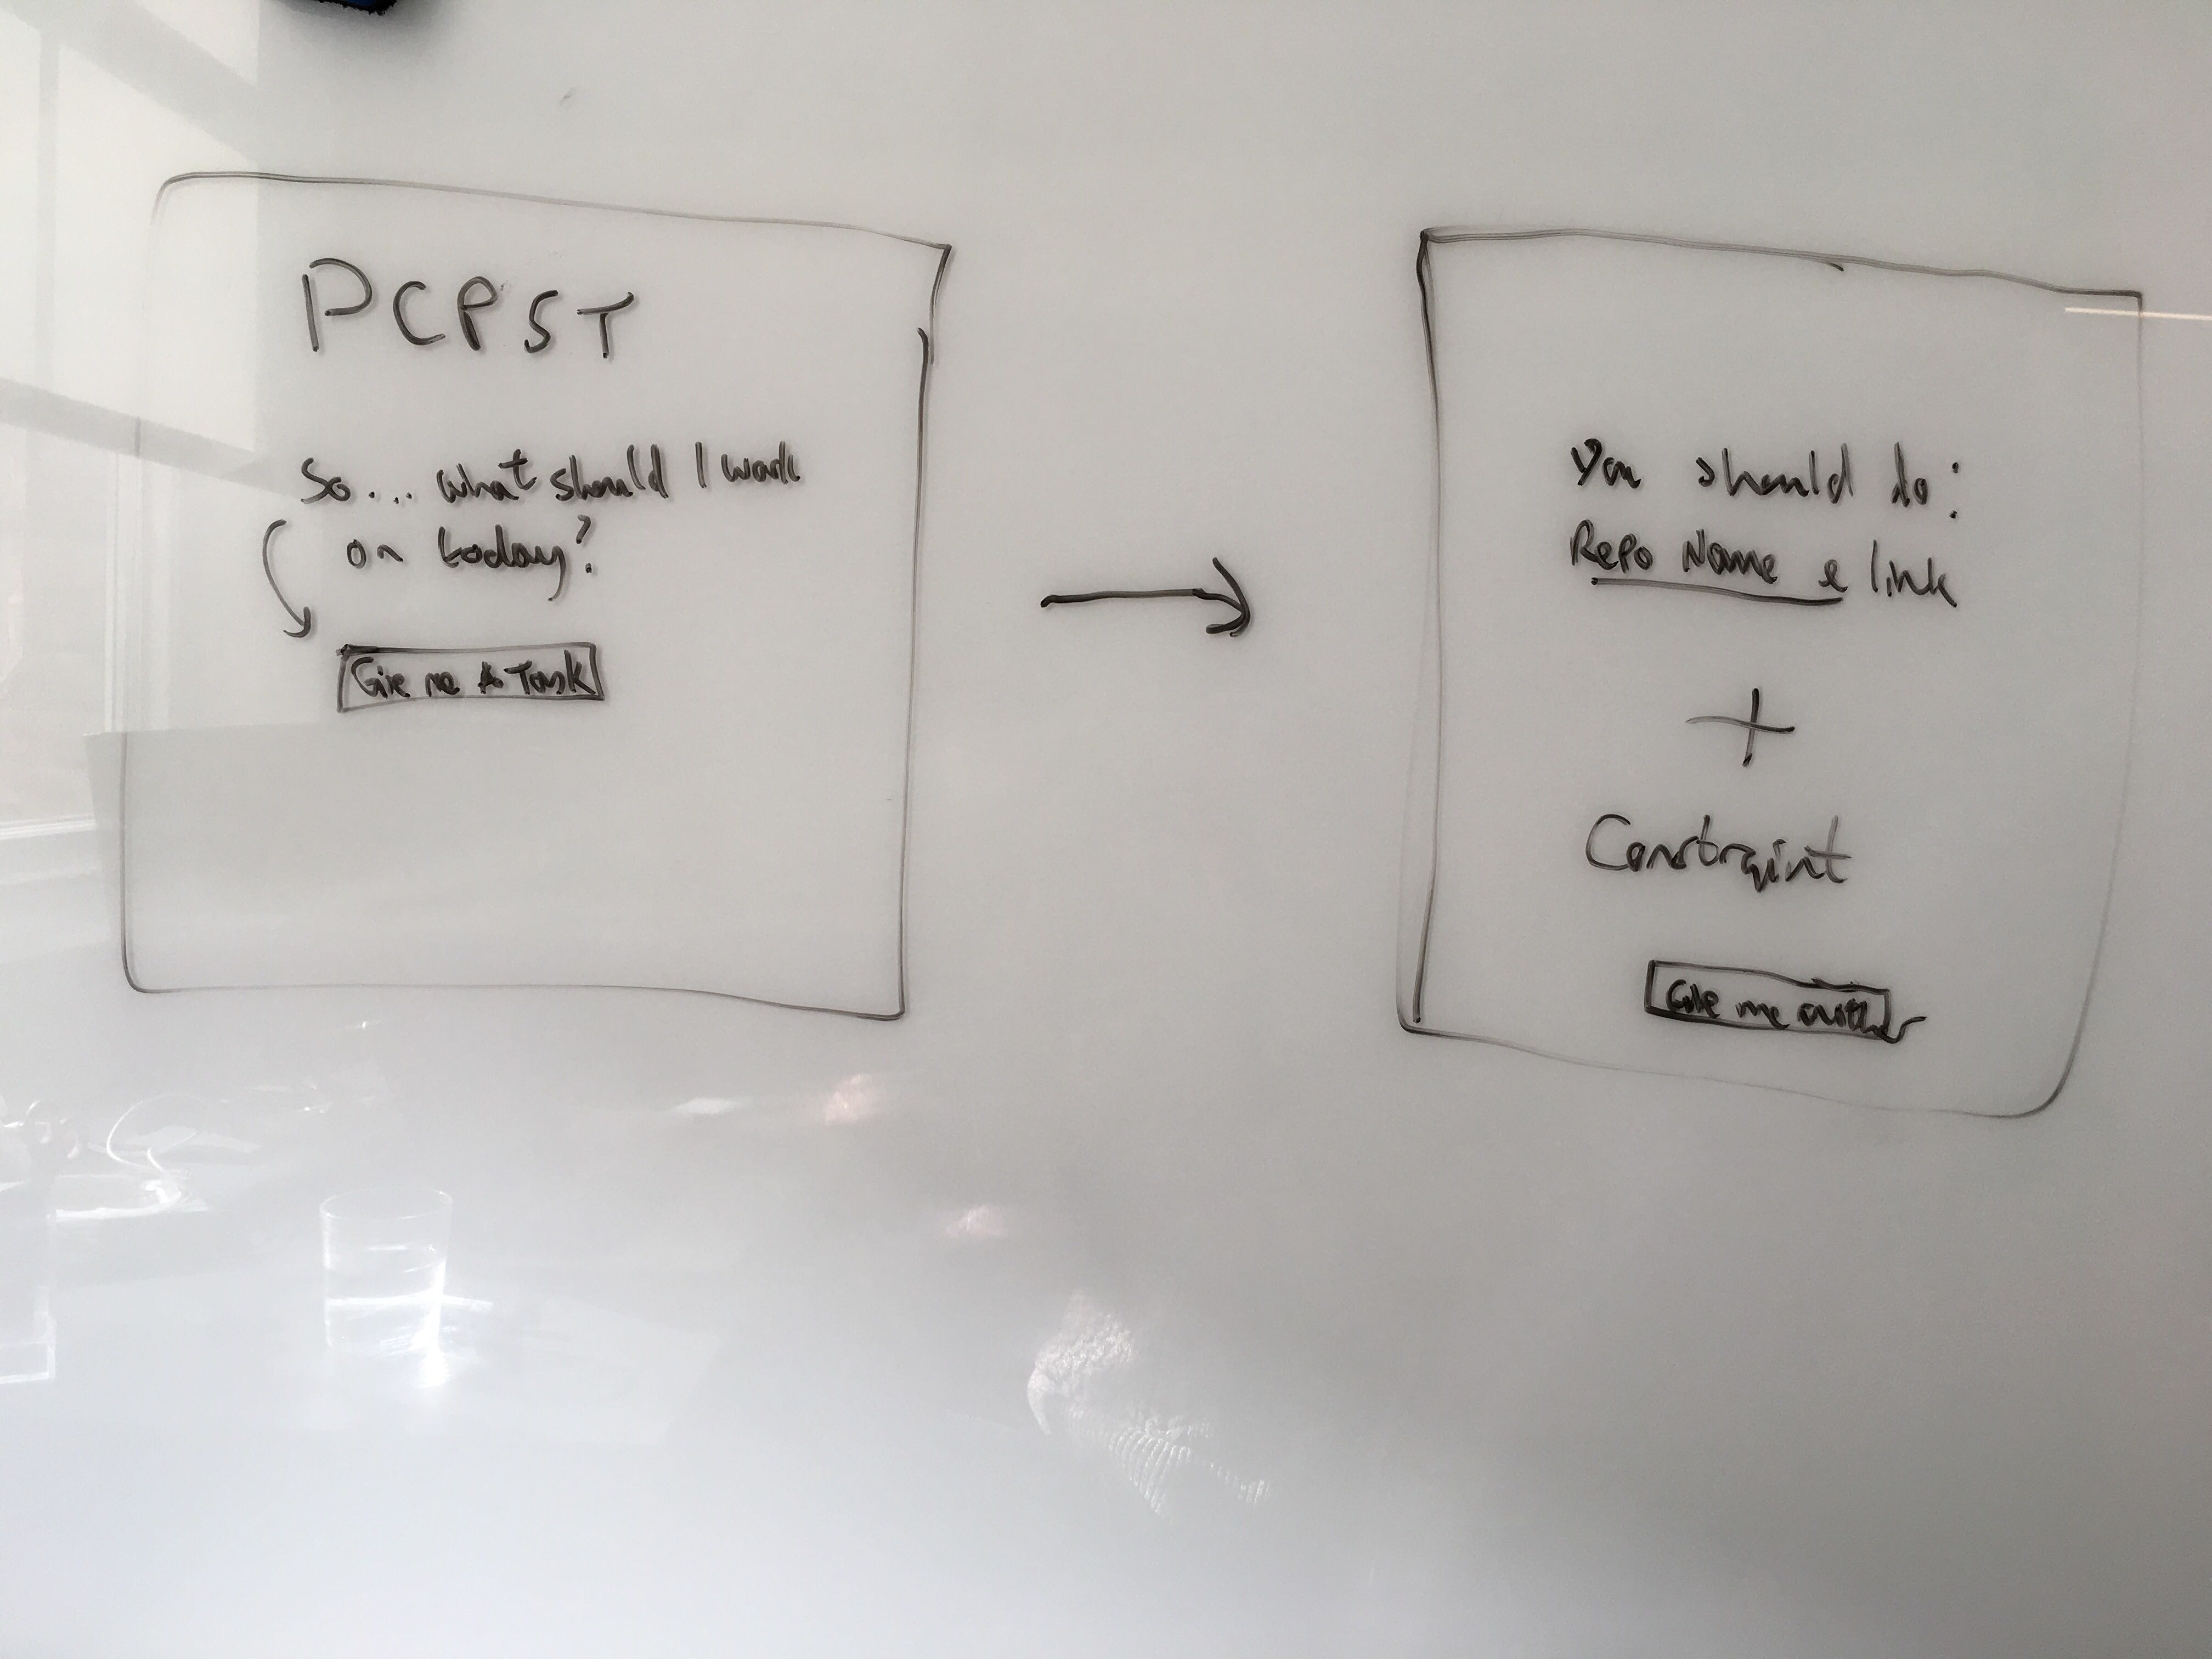 PCPST
So... what should I work
on today?
Give me A Task
You should do:
Repo Name & link
+
Constraint
Give me another